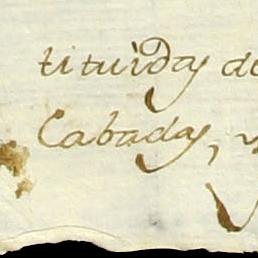 tituida de
Cabada,